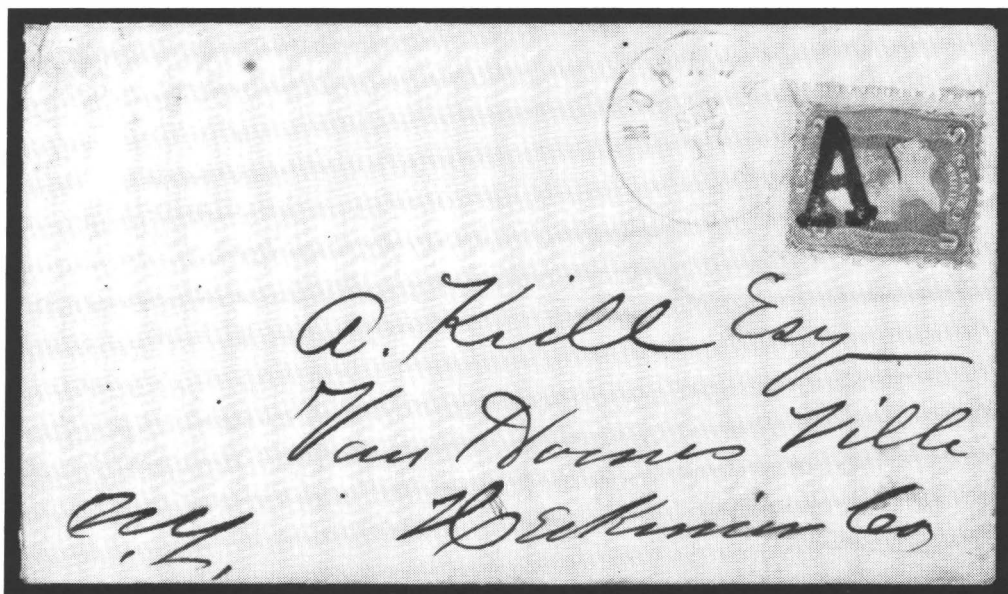 A
A. Kill Esq
Van Hornes Ville
Herkimer Co
N.Y.